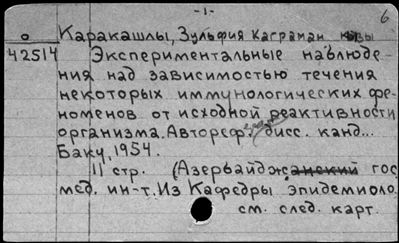 -1-
6
Каракашлы, Зульфия Каграман кызы
0
42514 Экспериментальные наблюде-
ния над зависимостью течения
некоторых иммунологических фе-
номенов от исходной реактивности
организма. Автореф. дисс. канд...
Баку, 1954.
11 стр. (Азербайджанский гос
мед. ин-т. Из Кафедры эпидемиоло
см. след. карт.